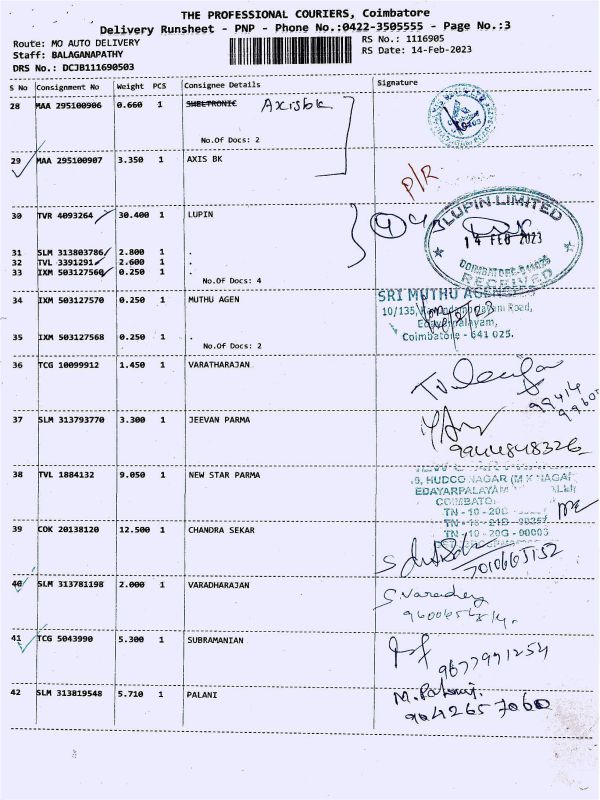 THE PROFESSIONAL COURIERS, Coimbatore
Delivery Runsheet - PNP - Phone No.:0422-3505555 - Page No.:3
Route: MO AUTO DELIVERY
RS No.: 1116905
Staff: BALAGANAPATHY
RS Date: 14-Feb-2023
DRS No.: DCJB111690503
S No Consignment No Weight PCS Consignee Details Signature
28 MAA 295100906 0.660 1 SHELTRONIC Axisbk
No.Of Docs: 2
29 MAA 295100907 3.350 1 AXIS BK
P/R
30 TVR 4093264 30.400 1 LUPIN
4
LUPIN LIMITED
14 FEB 2023
COIMBATORE-641026
RECEIVED
31 SLM 313803786 2.800 1 .
32 TVL 3391291 2.600 1 .
33 IXM 503127560 0.250 1 .
No.Of Docs: 4
34 IXM 503127570 0.250 1 MUTHU AGEN
SRI MUTHU AGENCIES
10/135, Road,
Edayarpalayam,
Coimbatore - 641 025.
35 IXM 503127568 0.250 1 .
No.Of Docs: 2
36 TCG 10099912 1.450 1 VARATHARAJAN
99414
99605
37 SLM 313793770 3.300 1 JEEVAN PARMA
9944848326
38 TVL 1884132 9.050 1 NEW STAR PARMA
HUDCO NAGAR (M K NAGAR
EDAYARPALAYAM
COIMBATO
TN - 10 - 20B
TN - 10 - 21B - 00257
TN - 10 - 20G - 00003
39 COK 20138120 12.500 1 CHANDRA SEKAR
7010665152
40 SLM 313781198 2.000 1 VARADHARAJAN
S Varadhey
41 TCG 5043990 5.300 1 SUBRAMANIAN
9677971254
42 SLM 313819548 5.710 1 PALANI
M. Palani.
9042657060